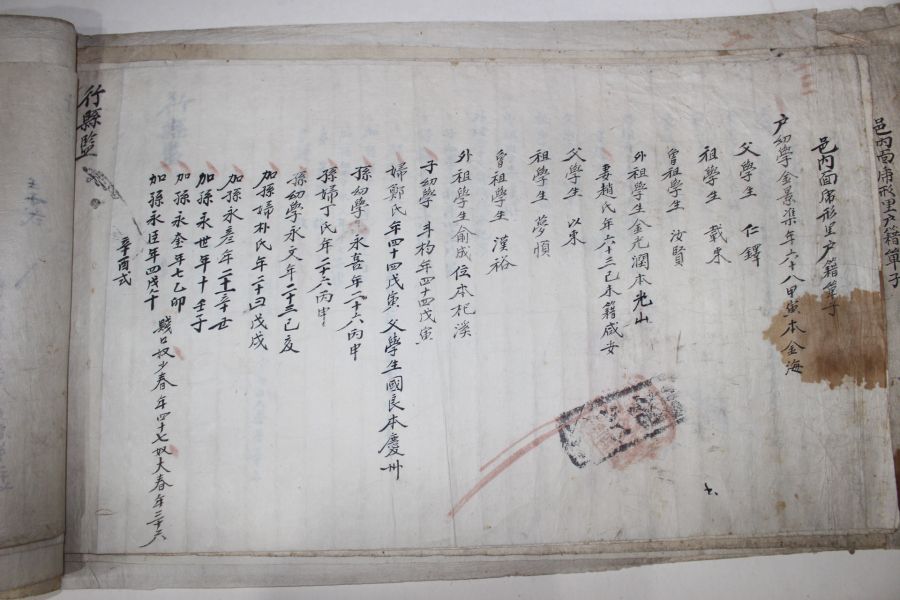 邑內面席形里戶籍單子
邑內面席形里戶籍單子
戶幼學金景渠年六十八甲寅本金海
父學生 仁鐸
祖學生 載東
曾祖學生 汝賢
外祖學生金光潤本光山
妻趙氏年六十三己未籍咸安
父學生 以東
祖學生 夢順
曾祖學生 漢裕
外祖學生俞成位本杞溪
子幼學 斗杓年四十四戊寅
婦鄭氏年四十四戊寅 父學生國良本慶州
孫幼學 永喜年二十六丙申
孫婦丁氏年二十六丙申
孫幼學永文年二十三己亥
加孫婦朴氏年二十四戊戌
加孫永 年二十 丑
加孫永世年十壬子
加孫永金年七乙卯
加孫永臣年四戊午
賤口奴少春年四十七奴大春年三十六
辛酉式
行縣監